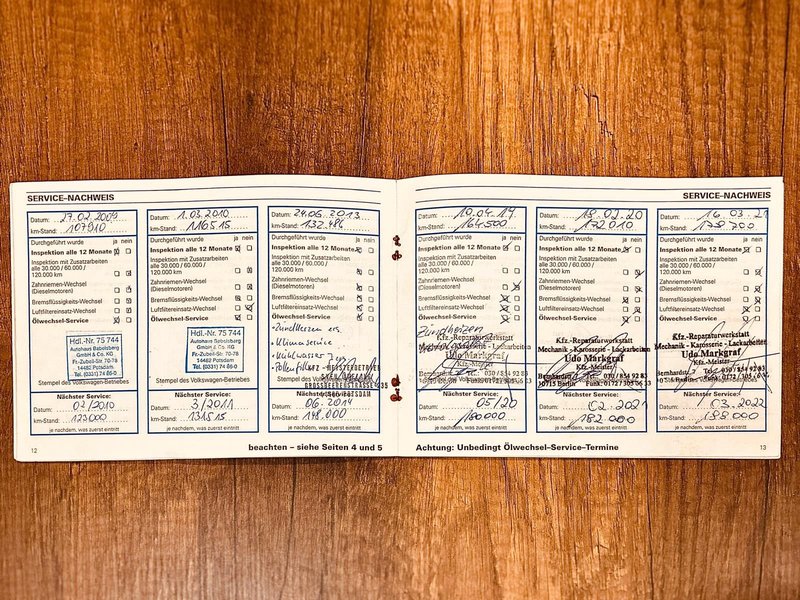 SERVICE–NACHWEIS
Datum: 27.02.2009
km-Stand: 107910
Durchgeführt wurde ja nein
Inspektion alle 12 Monate
Inspektion mit Zusatzarbeiten
alle 30.000 / 60.000 /
120.000 km
Zahnriemen-Wechsel
(Dieselmotoren)
Bremsflüssigkeits-Wechsel
Luftfiltereinsatz-Wechsel
Ölwechsel-Service
Hdl.-Nr. 75 744
Autohaus Babelsberg
GmbH & Co. KG
Fr.-Zubeil-Str. 70-78
14482 Potsdam
Tel. (0331) 74 86-0
Stempel des Volkswagen-Betriebes
Nächster Service:
Datum: 02/2010
km-Stand: 123000
je nachdem, was zuerst eintritt
Datum: 1.03.2010
km-Stand: 116515
Durchgeführt wurde ja nein
Inspektion alle 12 Monate
Inspektion mit Zusatzarbeiten
alle 30.000 / 60.000 /
120.000 km
Zahnriemen-Wechsel
(Dieselmotoren)
Bremsflüssigkeits-Wechsel
Luftfiltereinsatz-Wechsel
Ölwechsel-Service
Hdl.-Nr. 75 744
Autohaus Babelsberg
GmbH & Co. KG
Fr.-Zubeil-Str. 70-78
14482 Potsdam
Tel. (0331) 74 86-0
Stempel des Volkswagen-Betriebes
Nächster Service:
Datum: 3/2011
km-Stand: 131515
je nachdem, was zuerst eintritt
Datum: 24.06.2013
km-Stand: 132.486
Durchgeführt wurde ja nein
Inspektion alle 12 Monate
Inspektion mit Zusatzarbeiten
alle 30.000 / 60.000 /
120.000 km
Zahnriemen-Wechsel
(Dieselmotoren)
Bremsflüssigkeits-Wechsel
Luftfiltereinsatz-Wechsel
Ölwechsel-Service
- Zündkerzen ers.
- Klimaservice
- Kühlwasser
- Pollenfilter
KFZ-MEISTERBETRIEB
GROSSBEERENSTRASSE
POTSDAM
Nächster Service:
Datum: 06.2014
km-Stand: 148.000
je nachdem, was zuerst eintritt
12
beachten – siehe Seiten 4 und 5
SERVICE–NACHWEIS
Datum: 10.04.19
km-Stand: 164.500
Durchgeführt wurde ja nein
Inspektion alle 12 Monate
Inspektion mit Zusatzarbeiten
alle 30.000 / 60.000 /
120.000 km
Zahnriemen-Wechsel
(Dieselmotoren)
Bremsflüssigkeits-Wechsel
Luftfiltereinsatz-Wechsel
Ölwechsel-Service
Zündkerzen
Kfz.-Reparaturwerkstatt
Mechanik - Karosserie - Lackarbeiten
Udo Markgraf
Kfz.-Meister
Bernhardstr.
10715 Berlin Funk: 01727 305 66 33
Nächster Service:
Datum: 05/20
km-Stand: 180000
je nachdem, was zuerst eintritt
Datum: 18.02.20
km-Stand: 172010
Durchgeführt wurde ja nein
Inspektion alle 12 Monate
Inspektion mit Zusatzarbeiten
alle 30.000 / 60.000 /
120.000 km
Zahnriemen-Wechsel
(Dieselmotoren)
Bremsflüssigkeits-Wechsel
Luftfiltereinsatz-Wechsel
Ölwechsel-Service
Kfz.-Reparaturwerkstatt
Mechanik - Karosserie - Lackarbeiten
Udo Markgraf
Kfz.-Meister
10715 Berlin
Nächster Service:
Datum: 02.2021
km-Stand: 182.000
je nachdem, was zuerst eintritt
Datum: 16.03.21
km-Stand:
Durchgeführt wurde ja nein
Inspektion alle 12 Monate
Inspektion mit Zusatzarbeiten
alle 30.000 / 60.000 /
120.000 km
Zahnriemen-Wechsel
(Dieselmotoren)
Bremsflüssigkeits-Wechsel
Luftfiltereinsatz-Wechsel
Ölwechsel-Service
Kfz.-Reparaturwerkstatt
Mechanik - Karosserie - Lackarbeiten
Udo Markgraf
Kfz.-Meister
Berlin
Nächster Service:
Datum: 03.2022
km-Stand:
je nachdem, was zuerst eintritt
Achtung: Unbedingt Ölwechsel–Service–Termine
13